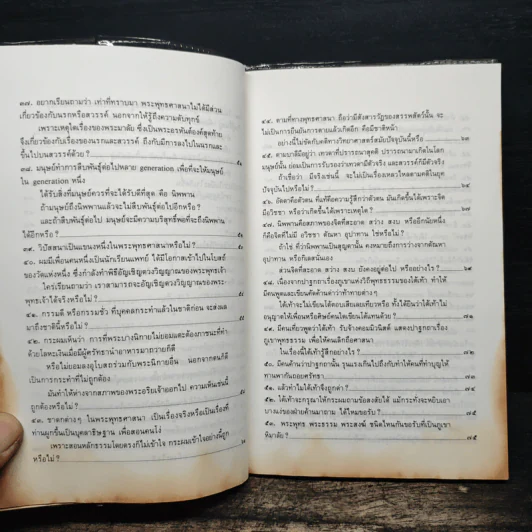 ๓๗. อยากเรียนถามว่า เท่าที่ทราบมา พระพุทธศาสนาไม่ได้มีส่วน
เกี่ยวข้องกับนรกหรือสวรรค์ นอกจากให้รู้ถึงความดับทุกข์
เพราะเหตุใดเรื่องของพระมาลัย ซึ่งเป็นพระอรหันต์องค์สุดท้าย
จึงเกี่ยวข้องกับเรื่องของนรกและสวรรค์ ถึงกับมีการลงไปในนรกและ
ขึ้นไปบนสวรรค์ด้วย ?
๓๘. มนุษย์ทำการสืบพันธุ์ต่อไปหลาย generation เพื่อที่จะให้มนุษย์
ใน generation หนึ่ง
ได้รับสิ่งที่มนุษย์ควรที่จะได้รับดีที่สุด คือ นิพพาน
ถ้ามนุษย์ถึงนิพพานแล้วจะไม่สืบพันธุ์ต่อไปอีกหรือ?
และถ้าไม่สืบพันธุ์ต่อไป มนุษย์จะมีความบริสุทธิ์พอที่จะถึงนิพพาน
ได้อีกหรือ?
๓๙. วิปัสสนาเป็นแขนงหนึ่งในพระพุทธศาสนาหรือไม่?
๔๐. ผมมีเพื่อนคนหนึ่งเป็นนักเรียนแพทย์ ได้มีโอกาสเข้าไปในโบสถ์
ของวัดแห่งหนึ่ง ซึ่งกำลังทำพิธีอัญเชิญดวงวิญญาณของพระพุทธเจ้า
ใคร่เรียนถามว่า เราสามารถจะอัญเชิญดวงวิญญาณของพระ-
พุทธเจ้าได้จริงหรือไม่ ?
๔๑. กรรมดี หรือกรรมชั่ว ที่บุคคลกระทำแล้วในชาติก่อน จะส่งผล
มาถึงชาตินี้หรือไม่ ?
๔๒. กระผมเห็นว่า การที่พระบางนิกายไม่ยอมแตะต้องภาชนะที่ทำ
ด้วยโลหะเงินเมื่อมีผู้ศรัทธานำอาหารมาถวายก็ดี
หรือไม่ยอมลงอุโบสถร่วมกับพระนิกายอื่น นอกจากตนก็ดี
เป็นการกระทำที่ไม่ถูกต้อง
มันทำให้ห่างจากสภาพของพระอริยเจ้าออกไป ความเห็นเช่นนี้
ถูกต้องหรือไม่ ?
๔๓. ชาดกต่างๆ ในพระพุทธศาสนา เป็นเรื่องจริงหรือเป็นเรื่องที่
ท่านผูกขึ้นเป็นบุคลาธิษฐาน เพื่อสอนคนโง่
เพราะสอนหลักธรรมโดยตรงก็ไม่เข้าใจ กระผมเข้าใจอย่างนี้ถูก
หรือไม่ ?
๔๔. ตามที่ทางพุทธศาสนา ถือว่ามีสังสารวัฏของสรรพสัตว์นั้น จะ
ไม่เป็นการยืนยันการตายแล้วเกิดอีก คือมีชาติหน้า
อย่างนี้ไม่ขัดกับคติทางวิทยาศาสตร์สมัยปัจจุบันนี้หรือ
๔๕. ตามบาลีมีอยู่ว่า เทวดาที่ปรารถนาสุคติ ปรารถนามาเกิดในโลก
มนุษย์นั้น ย่อมเป็นการรับรองว่าเทวดามีตัวจริง และสวรรค์ก็มีตัวจริง
ถ้าเชื่อว่า มีจริงเช่นนี้ จะไม่เป็นเรื่องเหลวไหลตามคติในยุค
ปัจจุบันไปหรือไม่ ?
๔๖. อัตตาคือตัวตน ที่แท้คือความรู้สึกว่าตน มันเกิดขึ้นได้เพราะจิต
มีอวิชชา หรือว่าเกิดขึ้นได้เพราะเหตุใด ?
๔๗. นิพพานคือสภาพของจิตที่สะอาด สว่าง สงบ หรืออีกนัยหนึ่ง
ก็คือจิตที่ไม่มี อวิชชา ตัณหา อุปาทาน ใช่หรือไม่ ?
ถ้าใช่ ที่ว่านิพพานเป็นสุญตานั้น คงหมายถึงการว่างจากตัณหา
อุปาทาน หรือกิเลสนั่นเอง
ส่วนจิตที่สะอาด สว่าง สงบ ยังคงอยู่ต่อไป หรืออย่างไร ?
๔๘. เนื่องจากปาฐกถาเรื่องภูเขาแห่งวิถีพุทธธรรมของใต้เท้า ทำให้
มีคนพูดและเขียนคัดค้านด่าว่าท้าทายต่างๆ
ใต้เท้าจะไม่เขียนโต้ตอบเสียเลยเทียวหรือ ทั้งได้ยินว่าใต้เท้าไม่
อนุญาตให้เพื่อนหรือศิษย์คนใดเขียนโต้แทนด้วย ?
๔๙. มีคนเที่ยวพูดว่าใต้เท้า รับจ้างคอมมิวนิสต์ แสดงปาฐกถาเรื่อง
ภูเขาพุทธธรรม เพื่อให้คนเลิกถือศาสนา
ในเรื่องนี้ใต้เท้ารู้สึกอย่างไร ?
๕๐. มีคนค้านว่าปาฐกถานั้น รุนแรงเกินไปถึงกับทำให้คนที่ทำบุญให้
ทานพากันถอยศรัทธา
๕๑. แล้วทำไมใต้เท้าจึงถูกด่า ?
๕๒. ใต้เท้าจะกรุณาให้กระผมถามข้อสงสัยได้ แม้กระทั่งจะหยิบเอา
บางแง่ของฝ่ายค้านมาถาม ได้ไหมขอรับ ?
๕๓. พระพุทธ พระธรรม พระสงฆ์ ชนิดไหนกันขอรับที่เป็นภูเขา
หิมาลัย ?